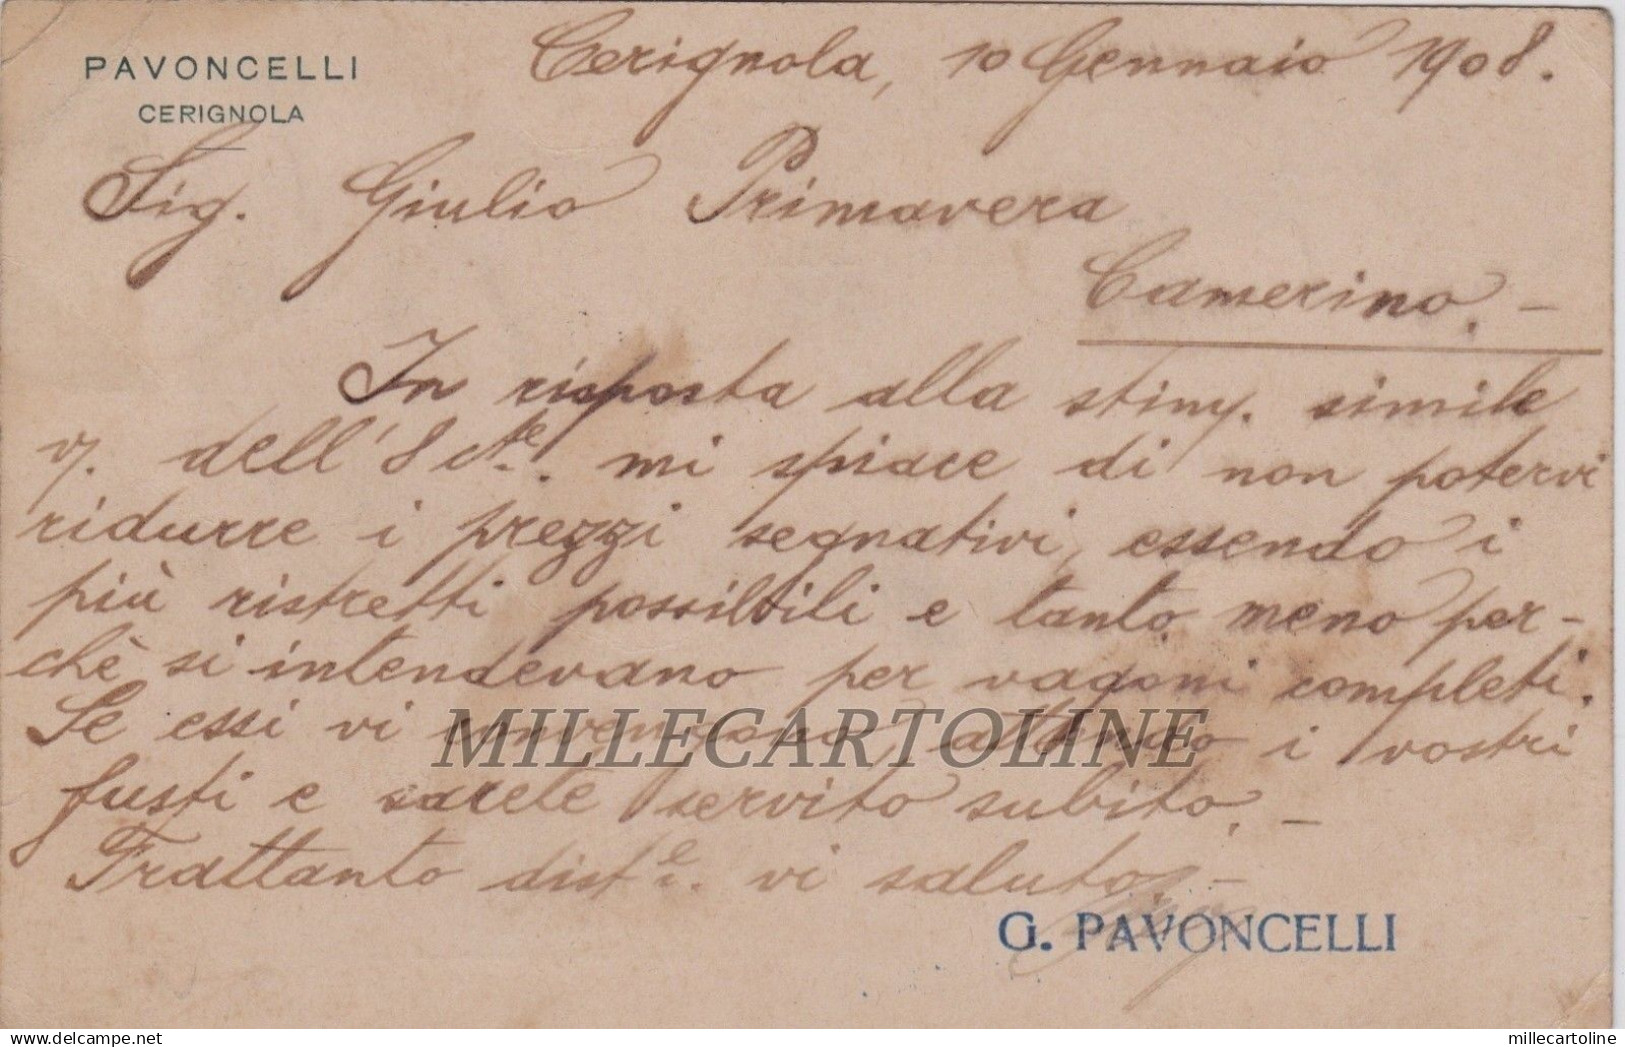 PAVONCELLI
CERIGNOLA
Cerignola, 10 Gennaio 1908.
Sig. Giulio Primavera
Camerino. -
In risposta alla stim. simile
v. dell' 8 cte. mi spiace di non potervi
ridurre i prezzi segnativi, essendo i
più ristretti possibili e tanto meno per-
chè si intendevano per vagoni completi.
Se essi vi convengono, attendo i vostri
MILLECARTOLINE
fusti e sarete servito subito. -
Frattanto diste. vi saluto. -
G. PAVONCELLI
delcampe.net
millecartoline